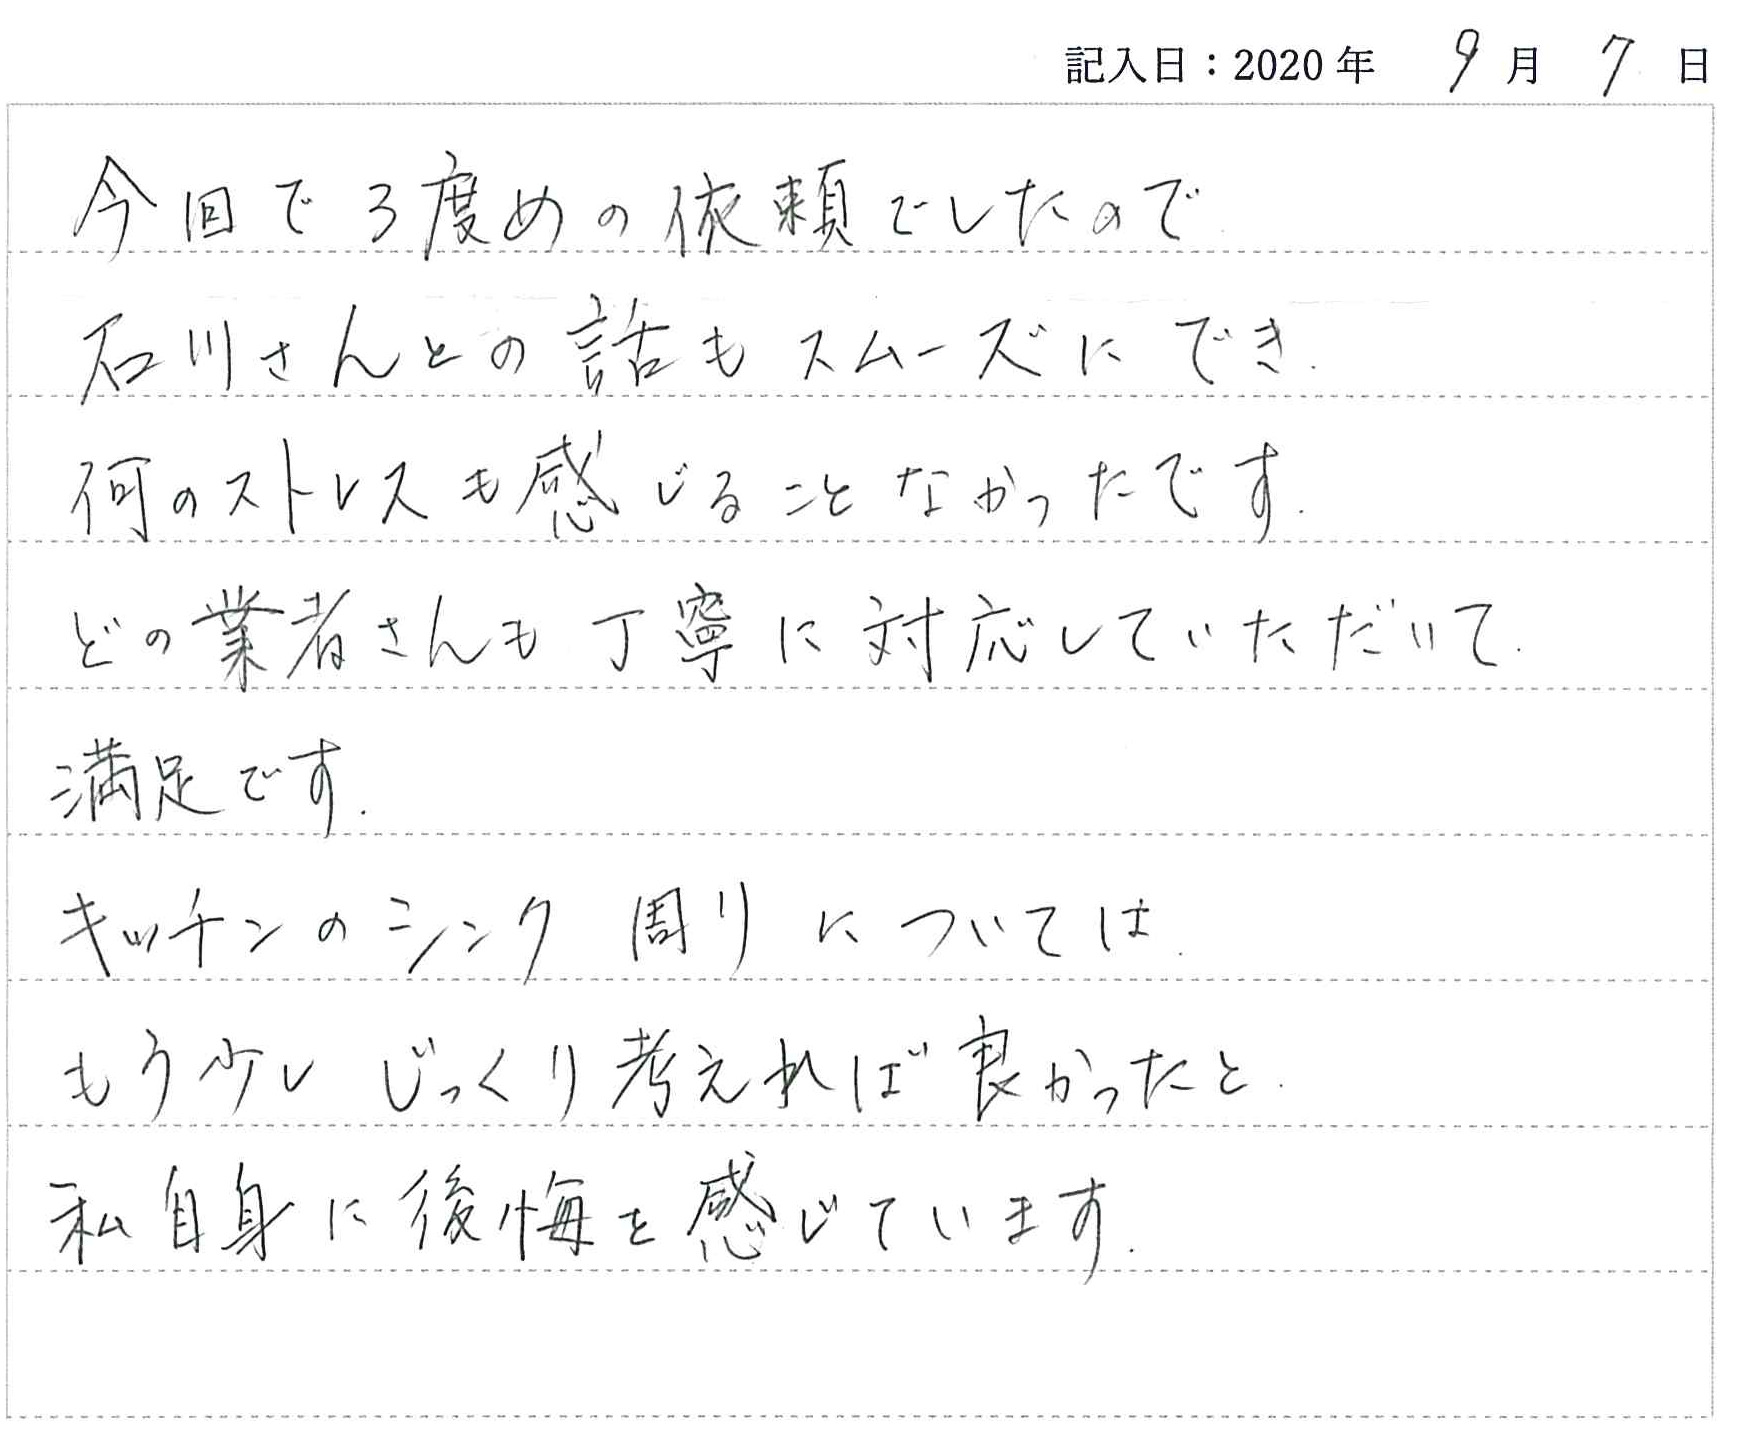 記入日：2020年 9月 7日
今回で3度めの依頼でしたので
石川さんとの話もスムーズにでき.
何のストレスも感じることなかったです.
どの業者さんも丁寧に対応していただいて.
満足です.
キッチンのシンク周りについては.
もう少しじっくり考えれば良かったと.
私自身に後悔を感じています.